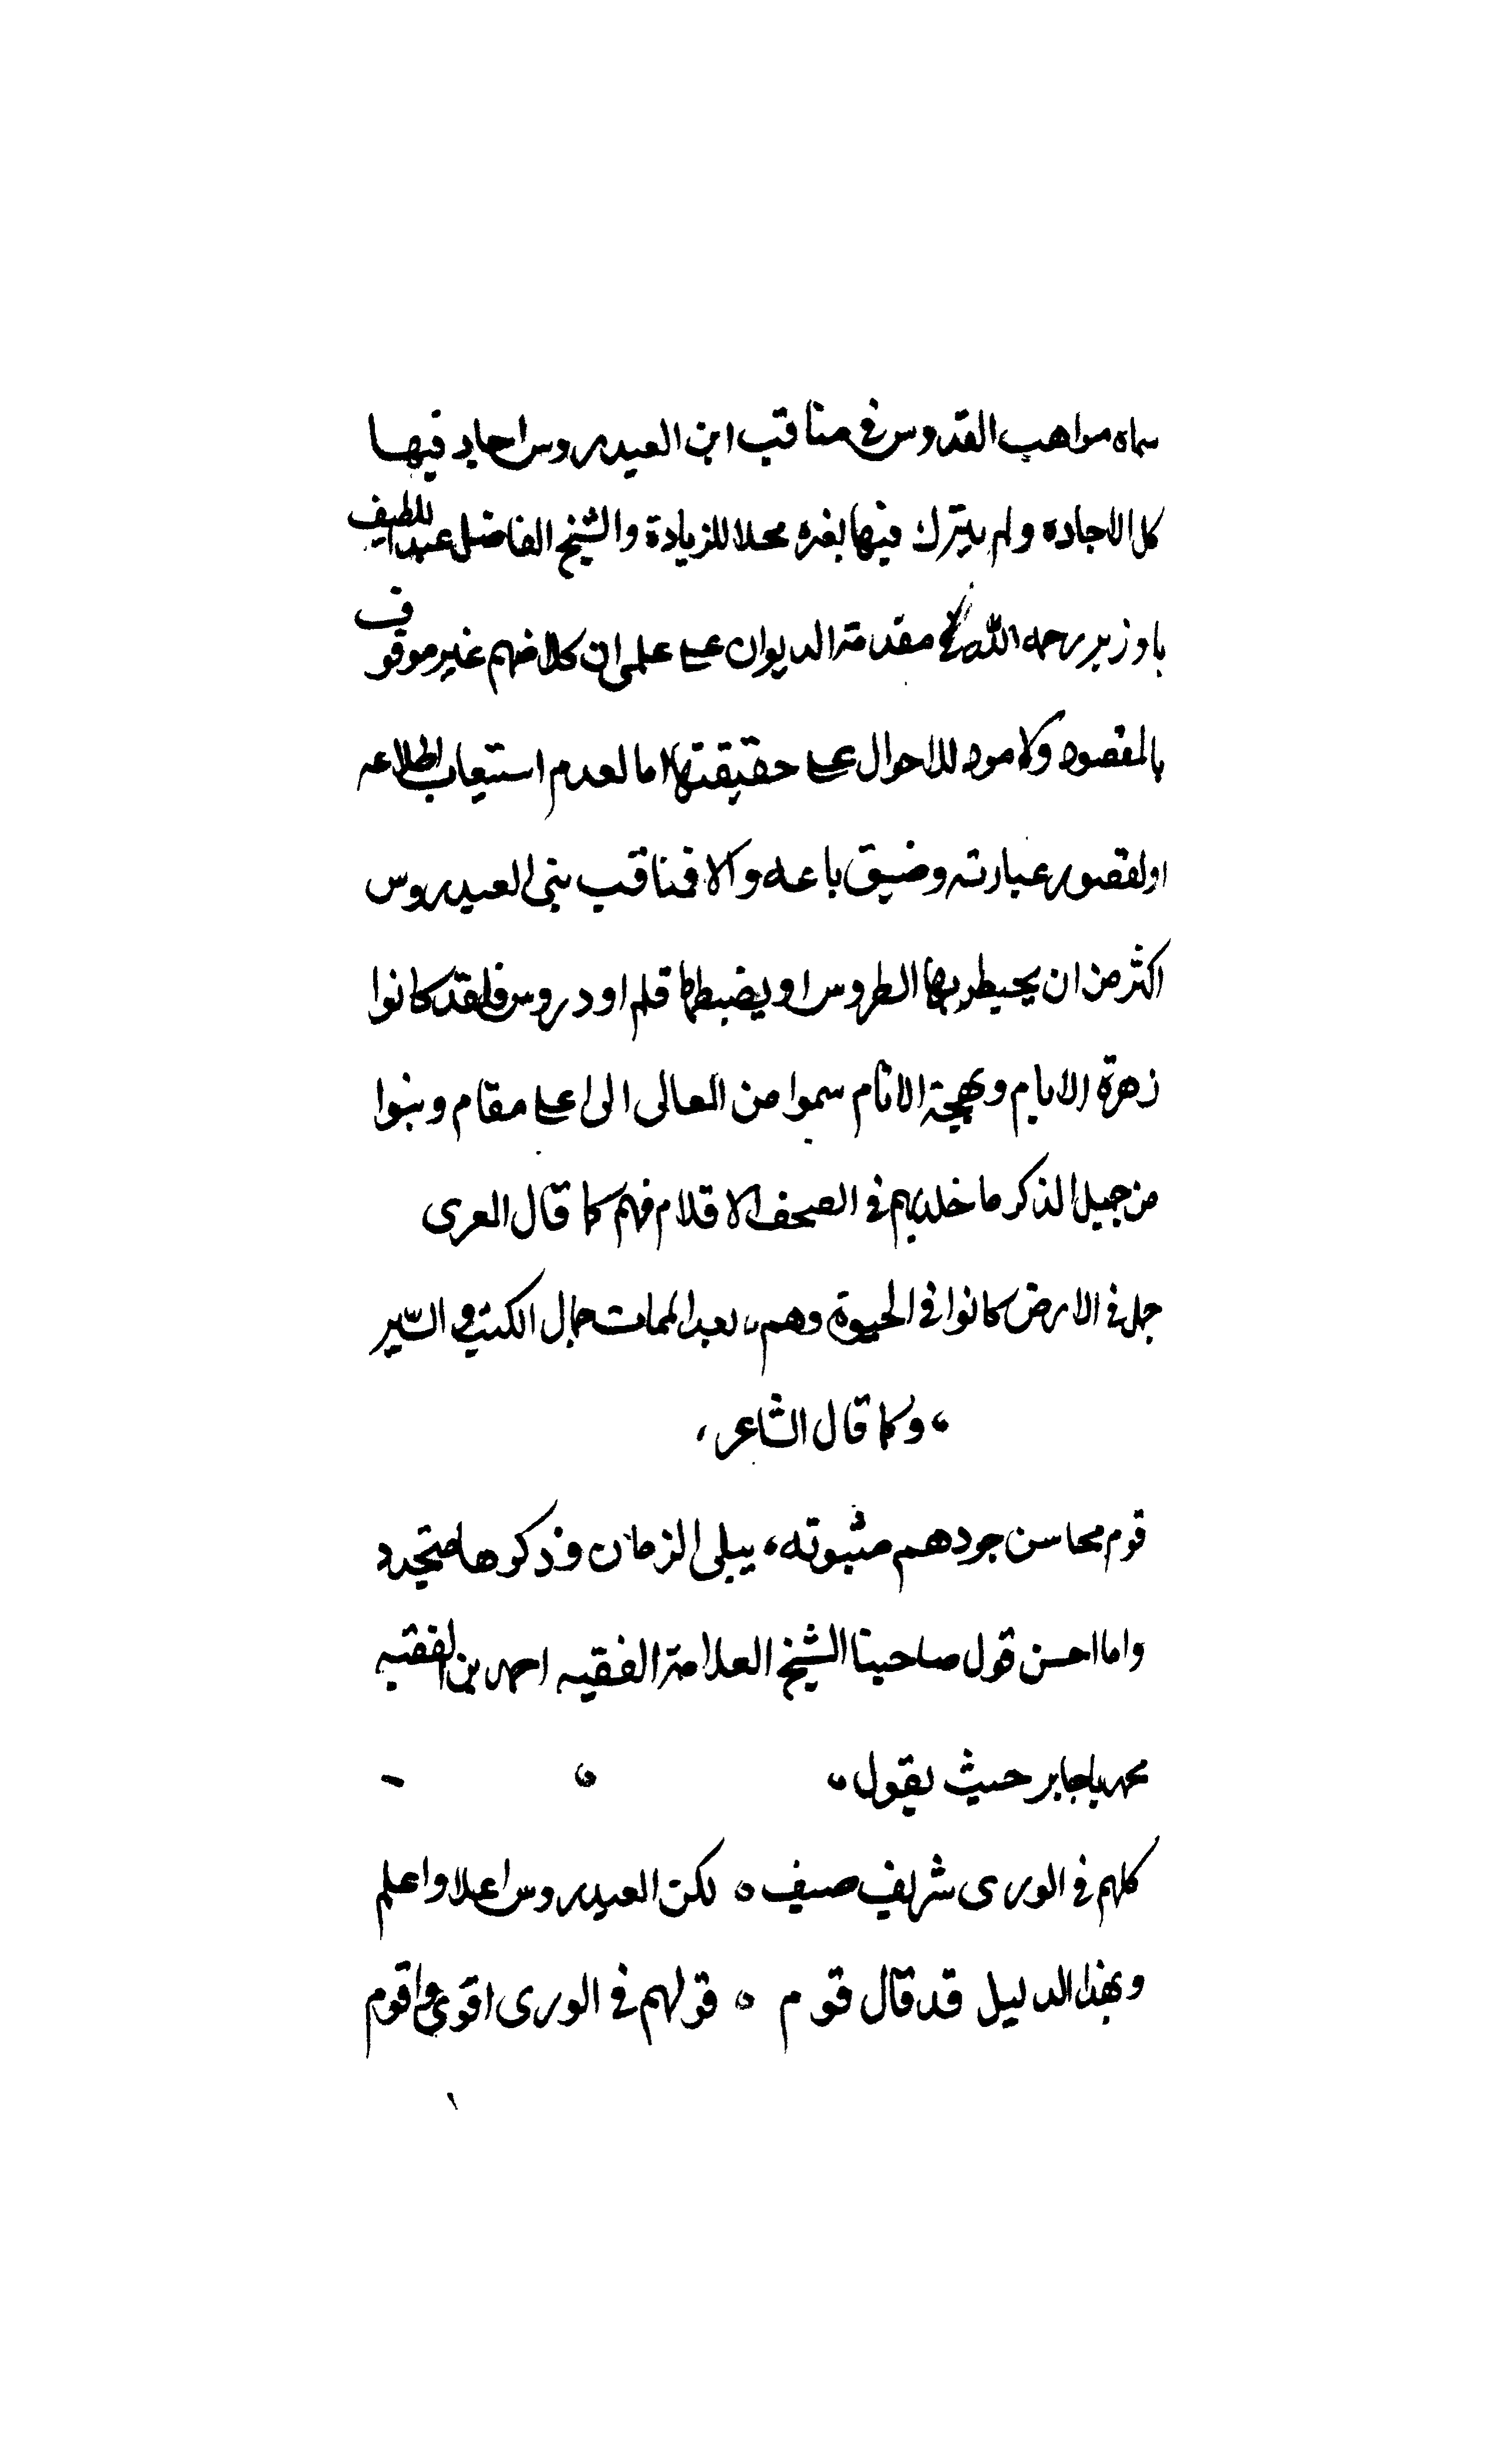 سماه مواهب القدوس في مناقب ابن العيدروس اجاد فيها
كل الاجاده ولم يترك فيها بغره محلا للزيادة والشيخ الفاضل عبداللطيف
باوزير رحمه الله في مقدمة الديوان على علمي ان كلا منهم غير موقوف
بالمقصود ولا مود للاحوال على حقيقتها اما لعدم استيعاب اطلاعه
او لقصور عبارته وضيق باعه والا فمناقب بني العيدروس
اكثر من ان يحيط بها الطروس او يضبطها قلم او دروس فلقد كانوا
زهرة الايام وبهجة الانام سموا من المعالى الى اعلى مقام وبنوا
من جميل الذكر ما خلدتهم في الصحف الاقلام فهم كما قال العرى
جمل في الارض كانوا في الحيوة وهم، بعد الممات جمال الكتب والسّير
، وكما قال الشاعر ،
قوم محاسن جودهم مثبوته، يبلى الزمان وذكرها متجدد
واما احسن قول صاحبنا الشيخ العلامة الفقيه احمد بن الفقيه
محمد باجابر حيث يقول ،
كلهم في الورى شريف صنيف ه لكن العيدروس اعلا واعلم
وبهذا الدليل قد قال قوم ه قولهم في الورى اقوى واقوم